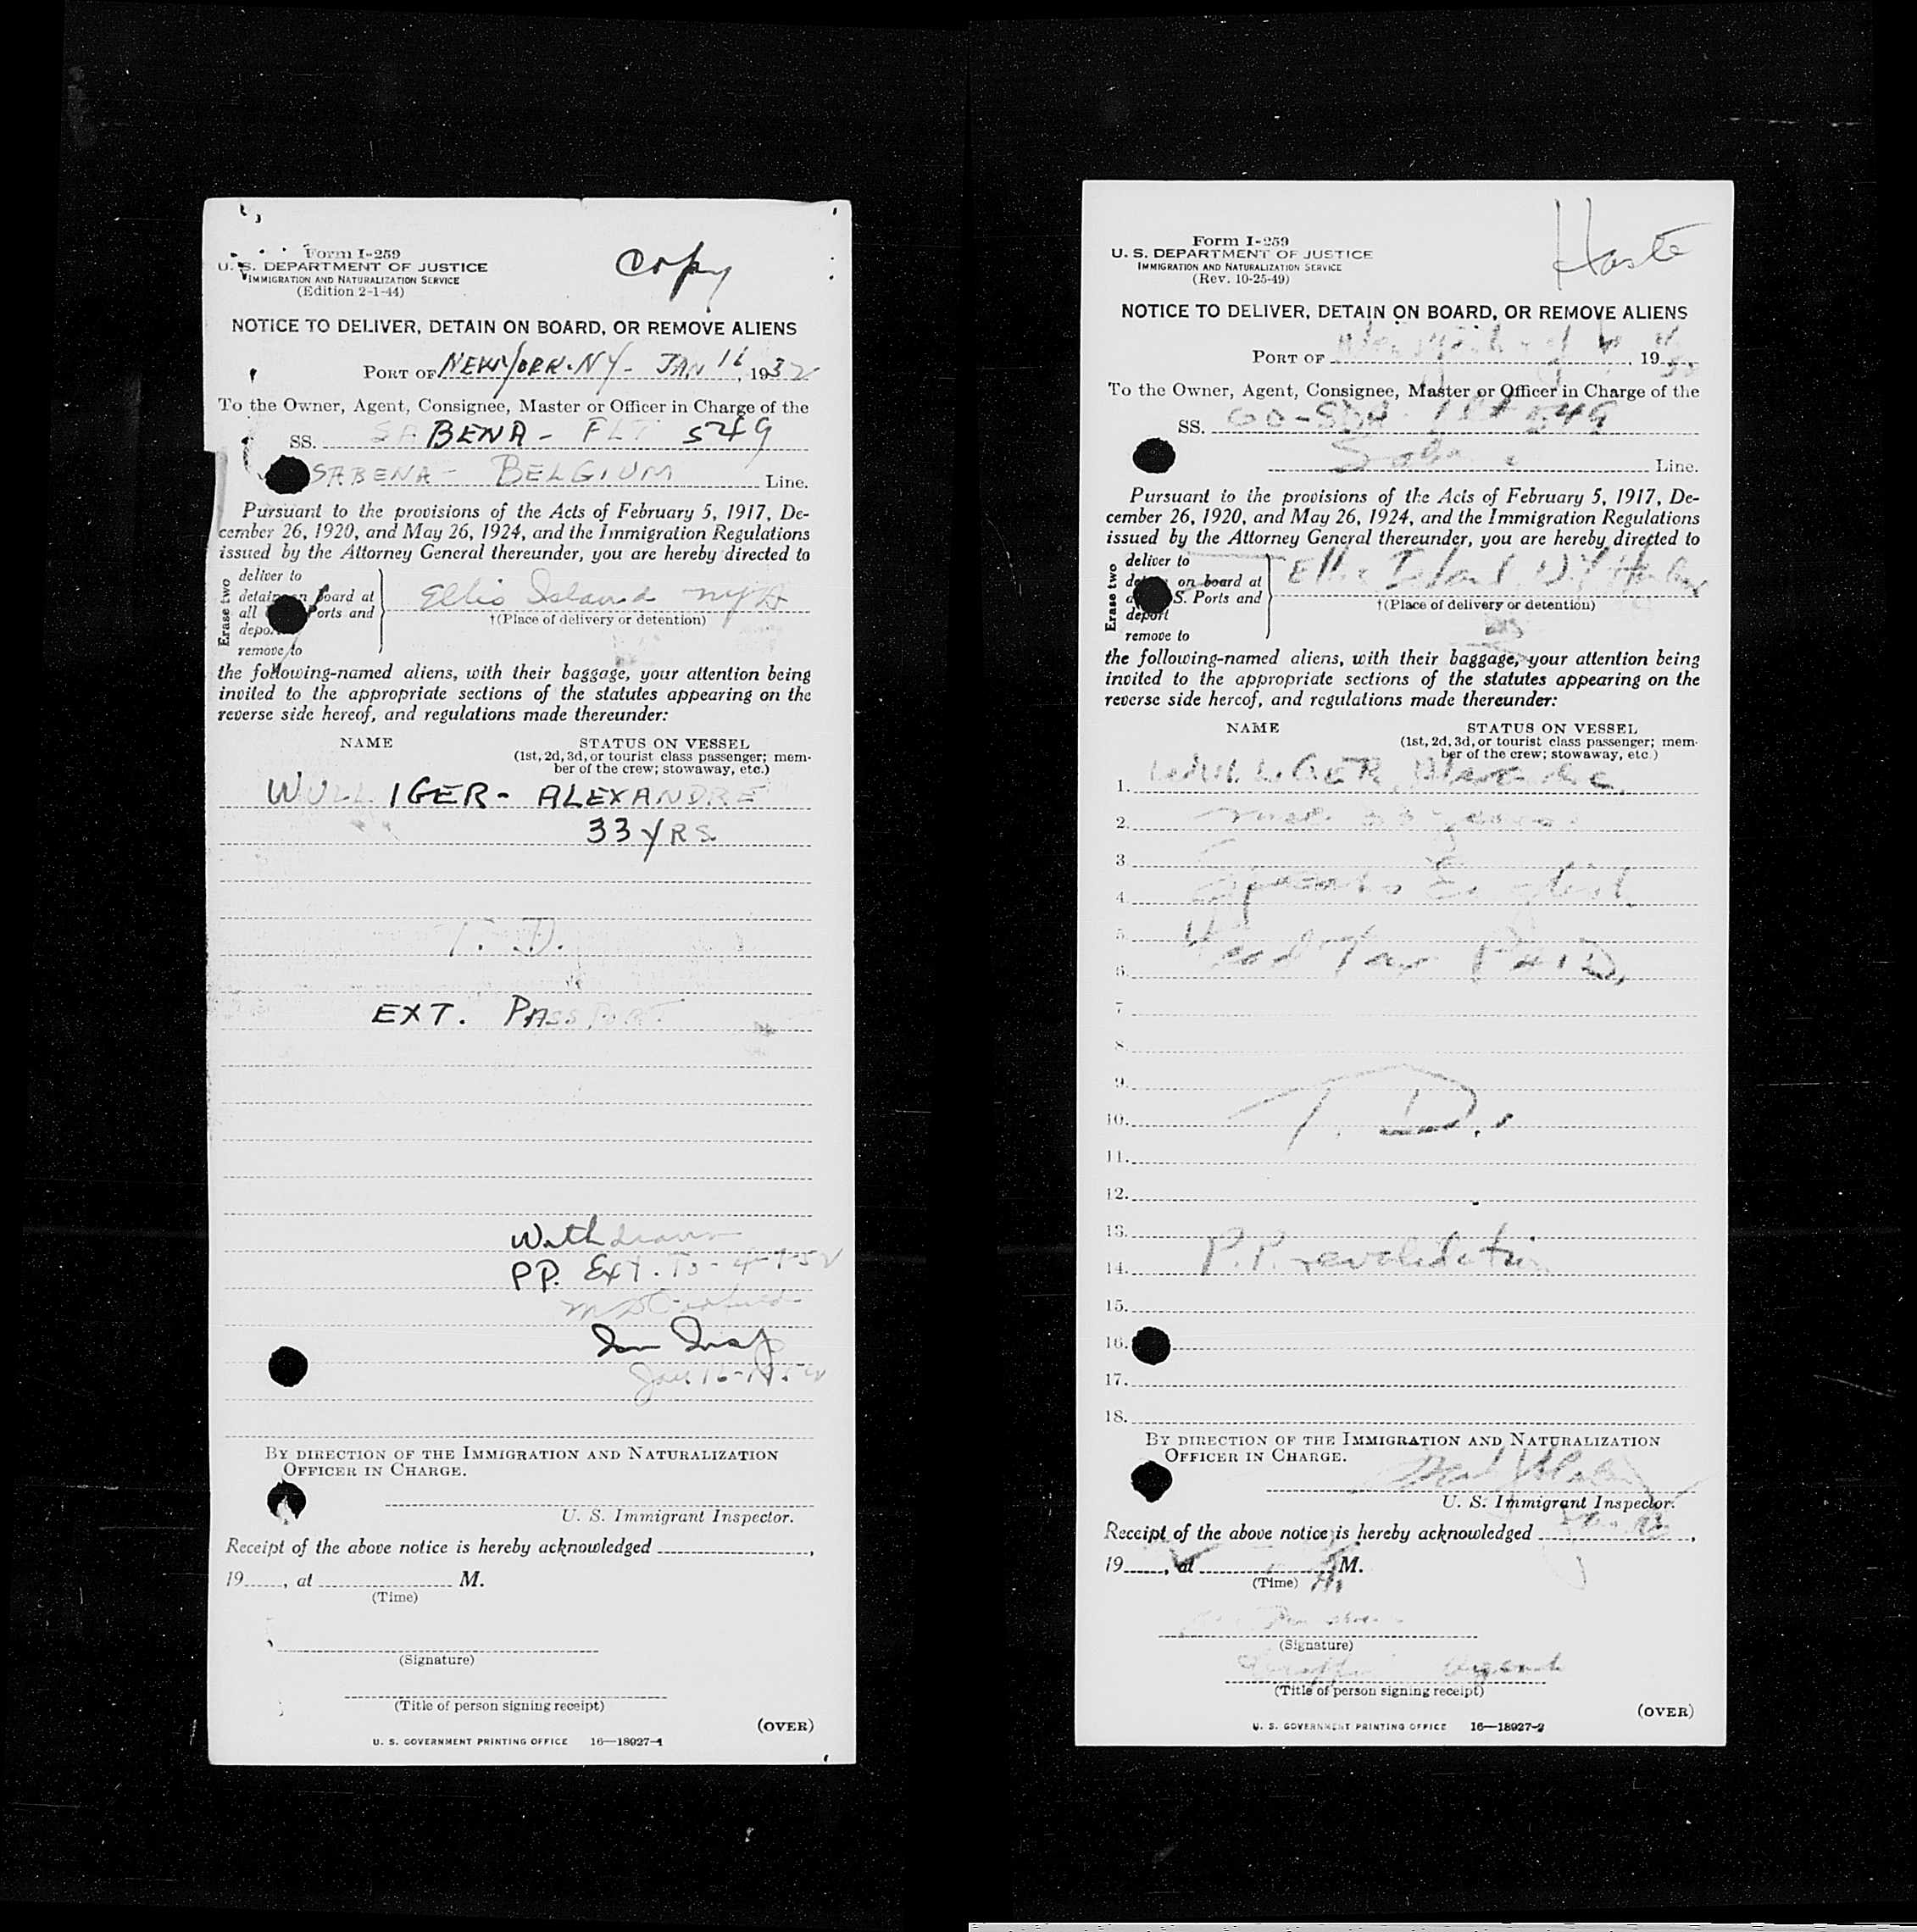 Form I-259
U. S. DEPARTMENT OF JUSTICE
IMMIGRATION AND NATURALIZATION SERVICE
(Edition 2-1-44)
Copy
NOTICE TO DELIVER, DETAIN ON BOARD, OR REMOVE ALIENS
PORT OF NEW YORK. NY - JAN 16, 1952
To the Owner, Agent, Consignee, Master or Officer in Charge of the
SS. SABENA - FLT 549
SABENA - BELGIUM Line.
Pursuant to the provisions of the Acts of February 5, 1917, De-
cember 26, 1920, and May 26, 1924, and the Immigration Regulations
issued by the Attorney General thereunder, you are hereby directed to
Erase two
deliver to
detain on board at
all Ports and
depor
remove to
Ellis Island NYH
†(Place of delivery or detention)
the following-named aliens, with their baggage, your attention being
invited to the appropriate sections of the statutes appearing on the
reverse side hereof, and regulations made thereunder:
NAME STATUS ON VESSEL
(1st, 2d, 3d, or tourist class passenger; mem-
ber of the crew; stowaway, etc.)
WULLIGER - ALEXANDRE
33 YRS
T. D.
EXT. PASSPORT
Withdrawn
PP. Ext. To - 4-7-52
Imm Insp
Jan 16-1952
BY DIRECTION OF THE IMMIGRATION AND NATURALIZATION
OFFICER IN CHARGE.
U. S. Immigrant Inspector.
Receipt of the above notice is hereby acknowledged ,
19 , at M.
(Time)
(Signature)
(Title of person signing receipt)
(OVER)
U. S. GOVERNMENT PRINTING OFFICE 16—18027-1
Form I-259
U. S. DEPARTMENT OF JUSTICE
IMMIGRATION AND NATURALIZATION SERVICE
(Rev. 10-25-49)
Haste
NOTICE TO DELIVER, DETAIN ON BOARD, OR REMOVE ALIENS
PORT OF New York , 19
To the Owner, Agent, Consignee, Master or Officer in Charge of the
SS. 549
Sabena Line.
Pursuant to the provisions of the Acts of February 5, 1917, De-
cember 26, 1920, and May 26, 1924, and the Immigration Regulations
issued by the Attorney General thereunder, you are hereby directed to
Erase two
deliver to
de on board at
a S. Ports and
deport
remove to
Ellis Island N.Y. Harbor
†(Place of delivery or detention)
the following-named aliens, with their baggage, your attention being
invited to the appropriate sections of the statutes appearing on the
reverse side hereof, and regulations made thereunder:
NAME STATUS ON VESSEL
(1st, 2d, 3d, or tourist class passenger; mem-
ber of the crew; stowaway, etc.)
1. WULLIGER,
2. male 33 years
3
4. Speaks English
5. Head Tax PAID
6.
7
8.
9.
10. T. D.
11.
12.
13.
14. P.P. revalidation
15.
16.
17.
18.
BY DIRECTION OF THE IMMIGRATION AND NATURALIZATION
OFFICER IN CHARGE.
U. S. Immigrant Inspector.
Receipt of the above notice is hereby acknowledged ,
19 , at M.
(Time)
(Signature)
Agent
(Title of person signing receipt)
(OVER)
U. S. GOVERNMENT PRINTING OFFICE 16—18027-2